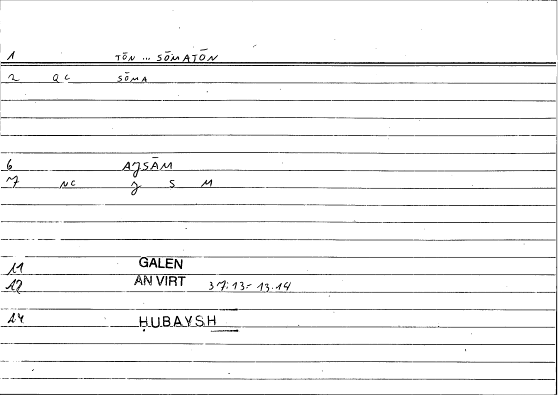 1 TŌN ... SŌMATŌN
2 QC SŌMA
6 AJSĀM
7 NC J S M
11 GALEN
12 AN VIRT 37:13-13.14
24 ḤUBAYSH